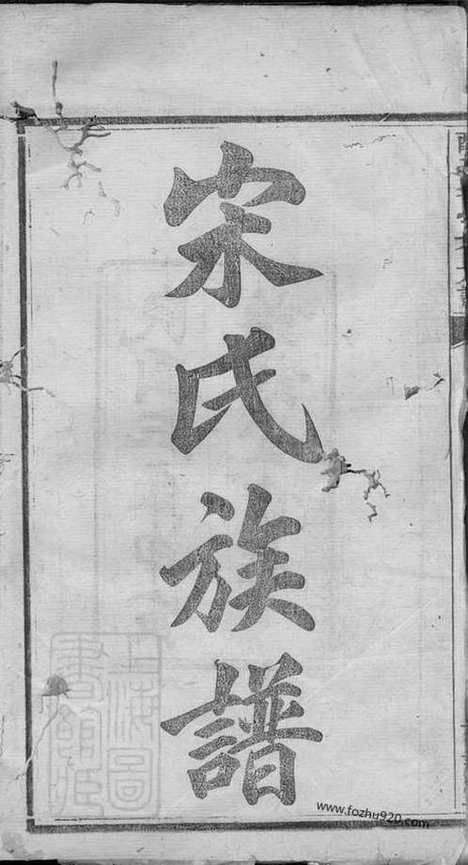 宋氏族譜
上海圖書館藏
www.fozhu920.com